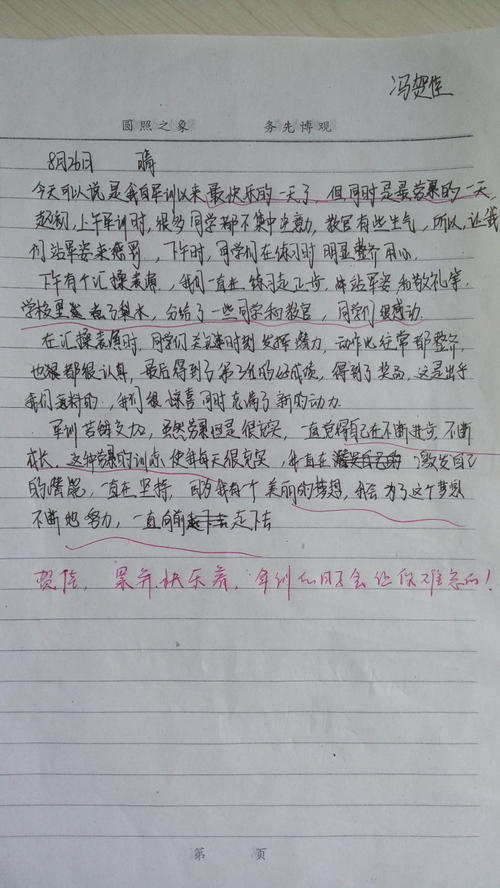 冯贺佳
圆照之象 务先博观
8月26日 晴
今天可以说是我自军训以来最快乐的一天了,但同时是最劳累的一天
起初,上午军训时,很多同学都不集中注意力,教官有些生气,所以,让我
们站军姿来惩罚,下午时,同学们在练习时明显整齐用心.
下午有个汇操表演,我们一直在练习走正步,体站军姿和敬礼等.
学校里发了梨水,分给了一些同学和教官,同学们很感动.
在汇操表演时,同学们关键时刻发挥潜力,动作比往常都整齐,
也很都很认真,最后得到了第二名的好成绩,得到了奖品,这是出乎
我们意料的,我们很惊喜同时充满了新的动力.
军训苦辣交加,虽然劳累但是很充实,一直觉得自己在不断进步,不断
成长,这种劳累的训练使我每天很充实,我一直在激发自己
的潜能,一直在坚持,因为我有个美丽的梦想,我会为了这个梦想
不断地努力,一直向前走下去
贺佳,累并快乐着,军训的日子会让你难忘的!
第 页